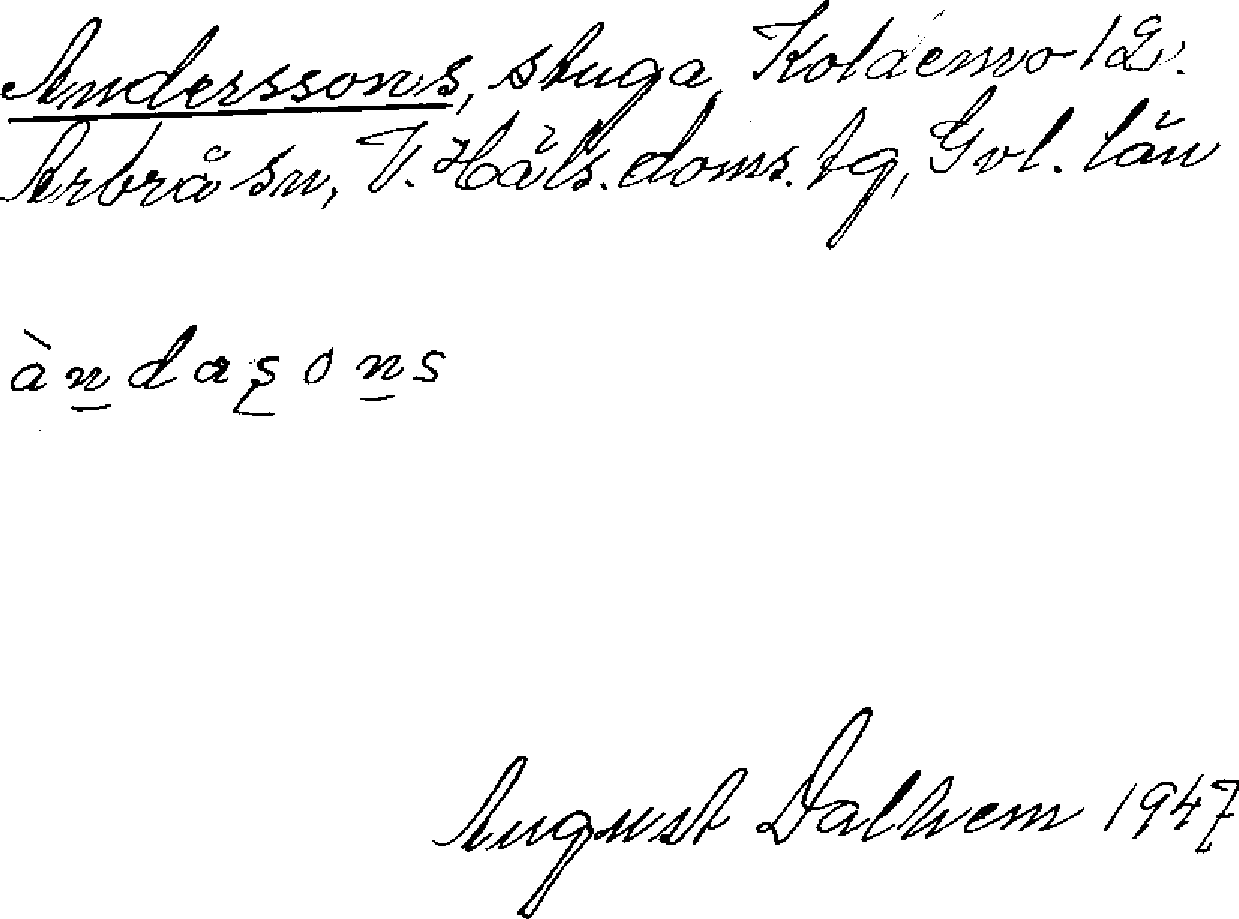 Anderssons, stuga, Koldemo 12.
Arbrå sn, V. Häls. doms. tg, Gvl. län
àn̲daʂon̲s
August Dalhem 1947